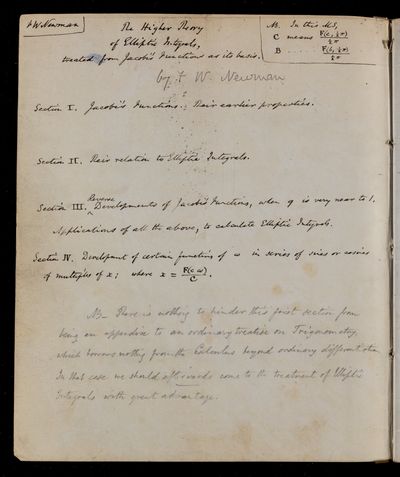 F W Newman
The Higher Theory
of Elliptic Integrals,
treated from Jacobi's Functions as its basis.
by F W. Newman
NB. In this MS,
C means F(c, ½π) / ½π
B ..... F(b, ½π) / ½π
Section I. Jacobi's Functions; their earlier properties.
Section II. Their relation to Elliptic Integrals.
Reverse
Section III. ^ Developments of Jacobi's Functions, when q is very near to 1.
Applications of all the above, to calculate Elliptic Integrals.
Section IV. Development of certain functions of ω in series of sines or cosines
of multiples of x; where x = F(c ω) / C.
NB. There is nothing to hinder this first section from
being an appendix to an ordinary treatise on Trigonometry,
which borrows nothing from the Calculus beyond ordinary differentiation.
In that case we should afterwards come to the treatment of Elliptic
Integrals with great advantage.